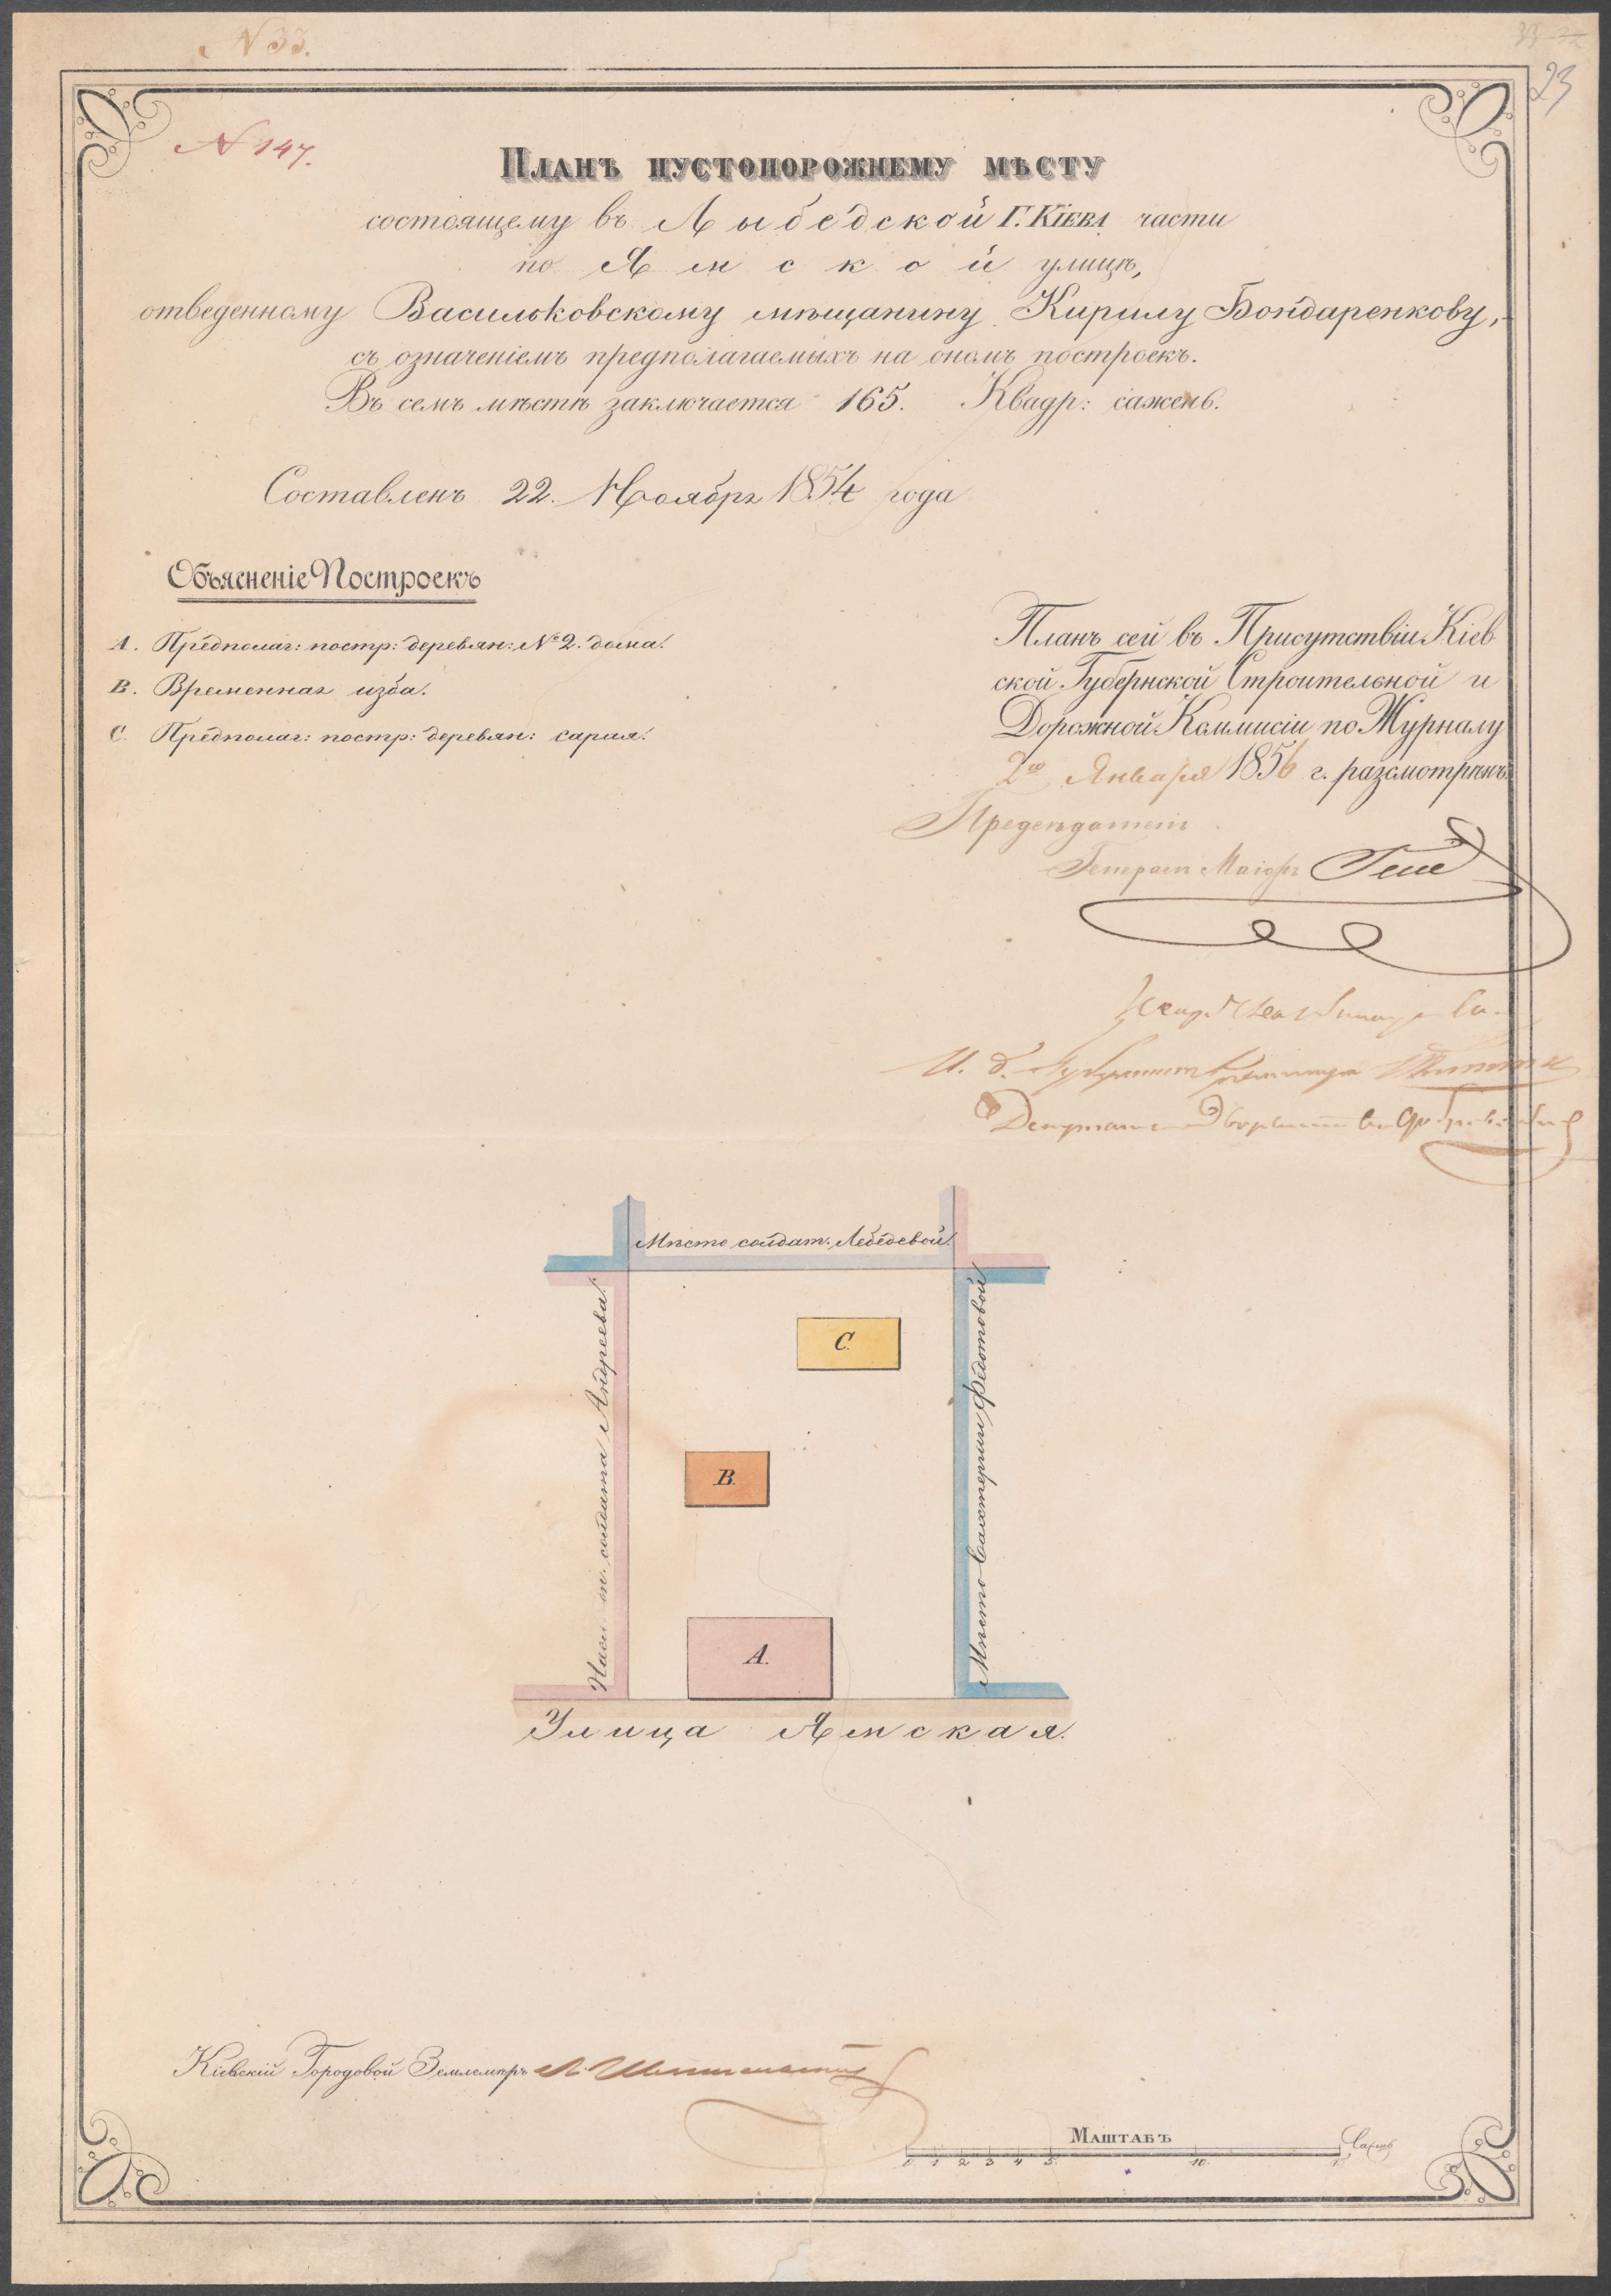 N 33.
23
N 147.
Планъ пустопорожнему мѣсту
состоящему въ Лыбедской Г. Кіева части
по Ямской улицѣ,
отведенному Васильковскому мѣщанину Кирилу Бондаренкову,
съ означеніемъ предполагаемыхъ на ономъ построекъ.
Въ семъ мѣстѣ заключается 165. Квадр: сажень.
Составленъ 22. Ноября 1854 года
Объясненіе Построекъ
A. Предполаг: постр: деревян: № 2. дома.
B. Временная изба.
C. Предполаг: постр: деревян: сарая.
Планъ сей въ Присутствіи Кіев
ской Губернской Строительной и
Дорожной Коммисіи по Журналу
2го Января 1856 г. разсмотрѣнъ
Предсѣдатель
Генералъ Маіоръ
И. д.
Мѣсто солдат: Лебедевой.
солдата Андреева
Мѣсто Вахтерши Федотовой
C.
B.
A.
Улица Ямская.
Кіевскій Городовой Землемѣръ
Маштабъ
Сажень
0 1 2 3 4 5 10